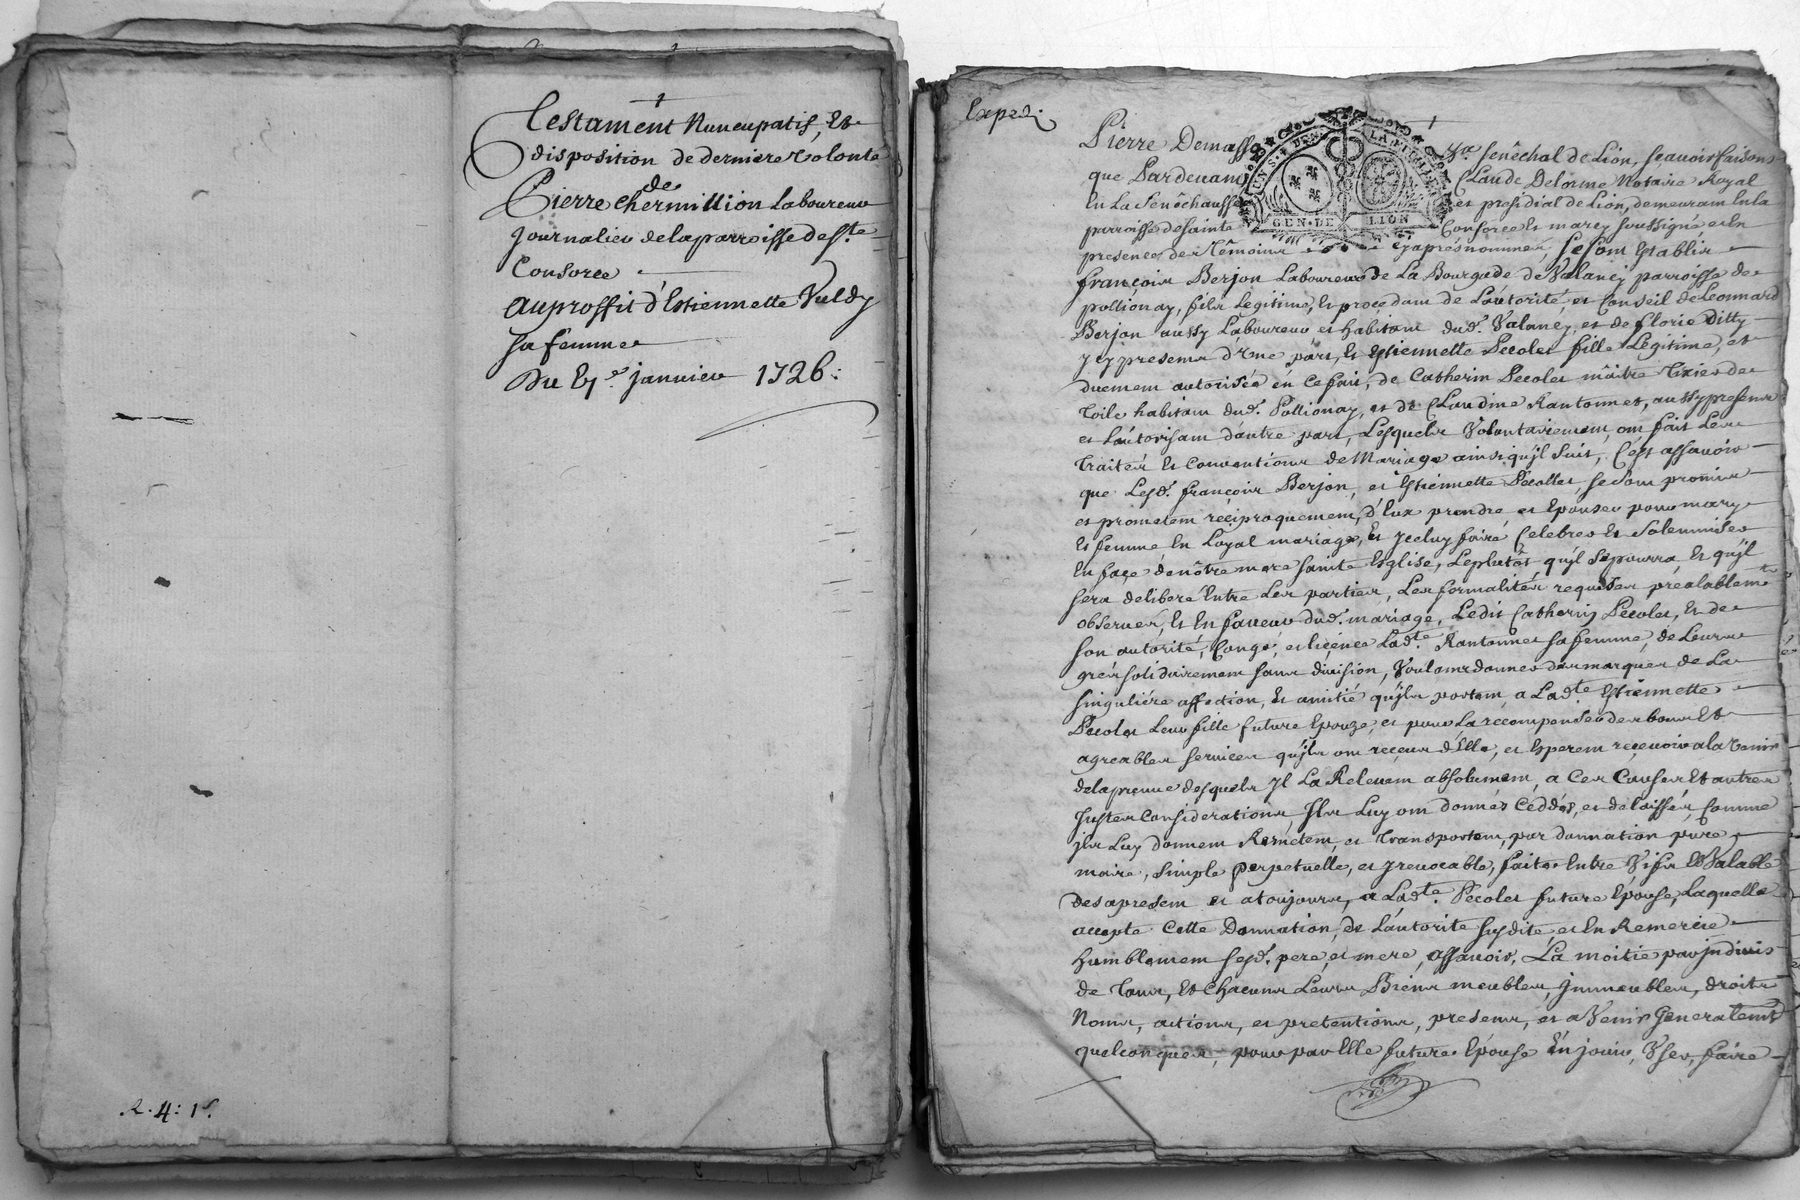 Testament Nuncupatif, Et
disposition de derniere volonté
de
Pierre Chermillion Laboureur
Journalier de la parroisse de Ste
Consorce
au proffit d'Estiennette Vuldy
sa femme
Du 6e janvier 1726:
2.4:1s.
Exped.
Pierre Demasso
que Pardevant
En La Senêchaussée
parroisse de Sainte
presence de Têmoins
GEN·DE LION
Senêchal de Lion, scavoir faisons
Claude Delorme Notaire Royal
et presidial de Lion, demeurant en la
Consorce et marcy soussigné et en
cy aprés nommés, se sont Establis
françois Berjon Laboureur de La Bourgade de Valancy parroisse de
pollionay, fils Legitime, et procedant de L'autorité et Conseil de Leonnard
Berjon aussy Laboureur et habitant dud. Valancy, et de florie Ditty
Icy presents d'Une part, Et Estiennette Pecolet fille Legitime, et
duement autorisée en ce fait, de Catherin Pecolet maître Tixier de
Toile habitant dud. Pollionay, et de Claudine Rantonnet, aussy presents
et L'autorisant d'autre part, Lesquels Volontairement, ont fait Leurs
Traités et Conventions de Mariage ainsi qu'jl suit, C'est assavoir
que Lesd. françois Berjon, et Estiennette Pecollet, se sont promis
et promettent reciproquement, d'Eux prendre et Epouser pour mary
Et femme En Loyal mariage, Et Iceluy faire Celebrer Et Solemniser
En face de nôtre mere sainte Eglise, Le plutôt qu'jl se pourra, Et qu'jl
sera deliberé Entre Les parties, Les formalités requises préalablemt
observées, Et En faveur dud. mariage, Ledit Catherin Pecolet, Et de
son autorité, Congé, et licence Ladte. Rantonnet sa femme de Leurs
grés solidairement sans division, Voulants donner des marques de La
singuliére affection, Et amitié qu'jls portent a Ladte Estiennette
Pecolet Leur fille future Epouze, et pour La recompenser des bons Et
agreables services qu'jls ont reçeus d'Elle, et Esperent reçevoir a la Venir
de la preuve desquels Jl La Relevent absolument, a Ces Causes Et autres
Justes Considerations, Jls Luy ont donnés Céddés, et delaissés, Comme
jls Luy donnent Remétent, et Transportent, par donnation pure,
maire, simple perpetuelle, et jrevocable, faite Entre Vifs Et Valable
Des apresent et a toujours, a Ladte. Pecolet future Epouse, Laquelle
accepte Cette Donnation, de L'autorité susdite, et En Remercie
Humblement sesd. pere, et mere, assavoir, La moitié par jndivis
de Tous, Et Chacuns Leurs Biens meubles, jmmeubles, droits
Noms, actions, et pretentions, presents, et a Venir Generalemt
quelconques, pour par Elle future Epouse En jouir, User, faire